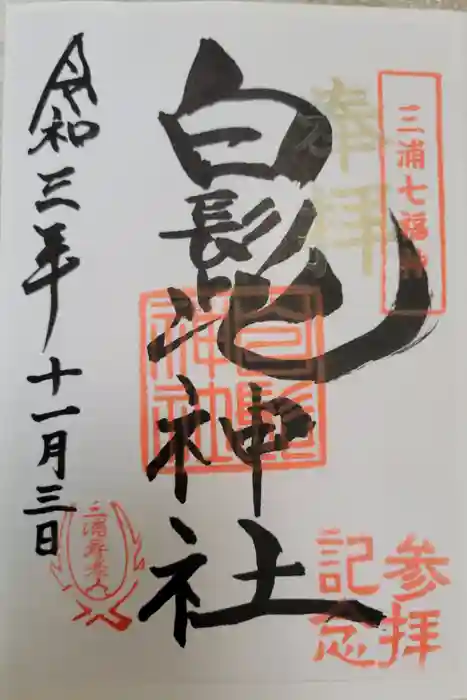 三浦七福神
奉拝
白髭神社
白髭
神社
参拝
記念
三浦寿老人
令和三年十一月三日